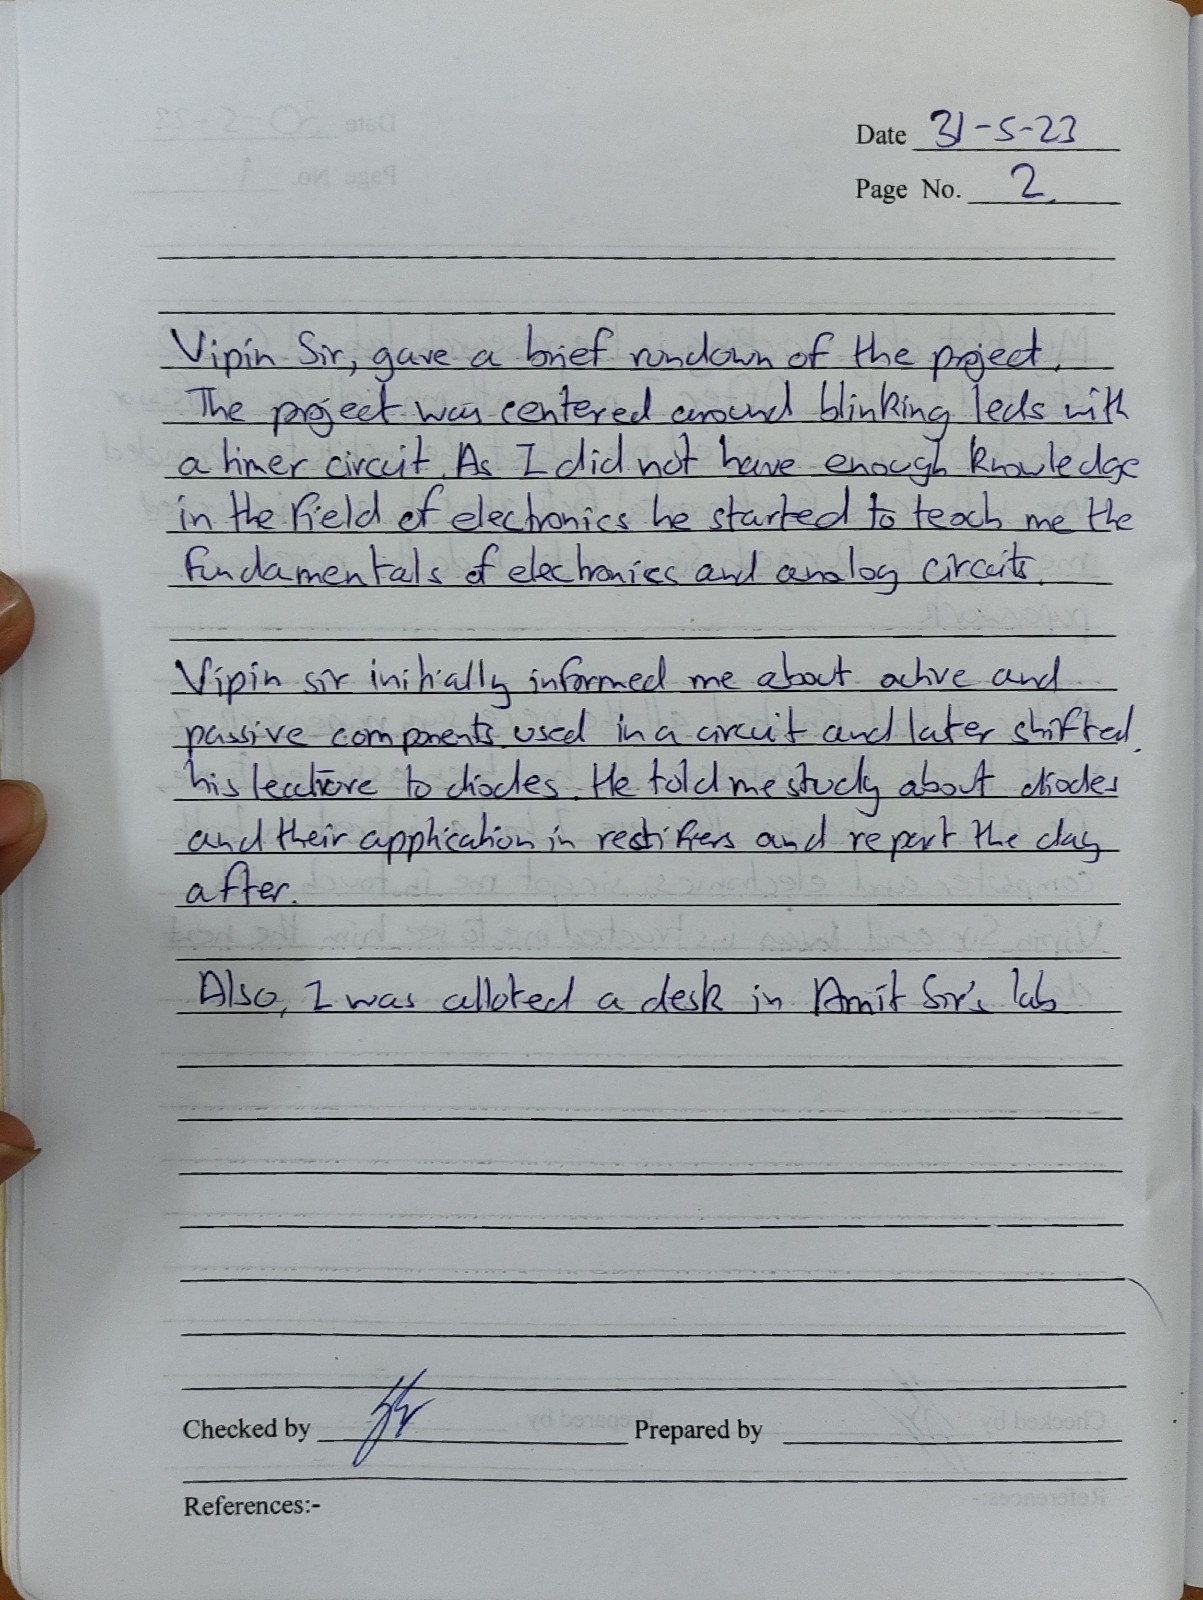 Date 31-5-23
Page No. 2
Vipin Sir, gave a brief rundown of the project.
The project was centered around blinking leds with
a timer circuit. As I did not have enough knowledge
in the field of electronics he started to teach me the
fundamentals of electronics and analog circuits.
Vipin sir initially informed me about active and
passive components used in a circuit and later shifted
his lecture to diodes. He told me study about diodes
and their application in rectifiers and report the day
after.
Also, I was alloted a desk in Amit Sir's lab
Checked by Prepared by
References:-